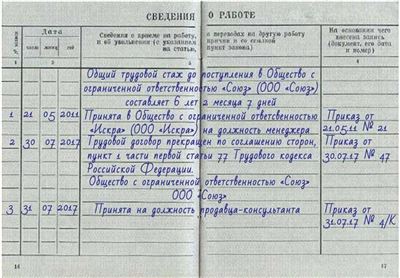 СВЕДЕНИЯ О РАБОТЕ
№ записи
Дата
число месяц год
Сведения о приеме на работу, о переводах на другую работу
и об увольнении (с указанием причин и со ссылкой
на статью, пункт закона)
На основании чего
внесена запись
(документ, его дата
и номер)
1 2 3 4
Общий трудовой стаж до поступления в Общество с
ограниченной ответственностью «Союз» (ООО «Союз»)
составляет 6 лет 2 месяца 7 дней
1 21 05 2011 Принята в Общество с ограниченной ответственностью Приказ от
«Искра» (ООО «Искра») на должность менеджера 21.05.11 № 21
2 30 07 2017 Трудовой договор прекращен по соглашению сторон, Приказ от
пункт 1 части первой статьи 77 Трудового кодекса 30.07.17 № 47
Российской Федерации.
Общество с ограниченной ответственностью «Союз»
ООО «Союз»
3 31 07 2017 Принята на должность продавца-консультанта Приказ от
31.07.17 № 4/К
16 17